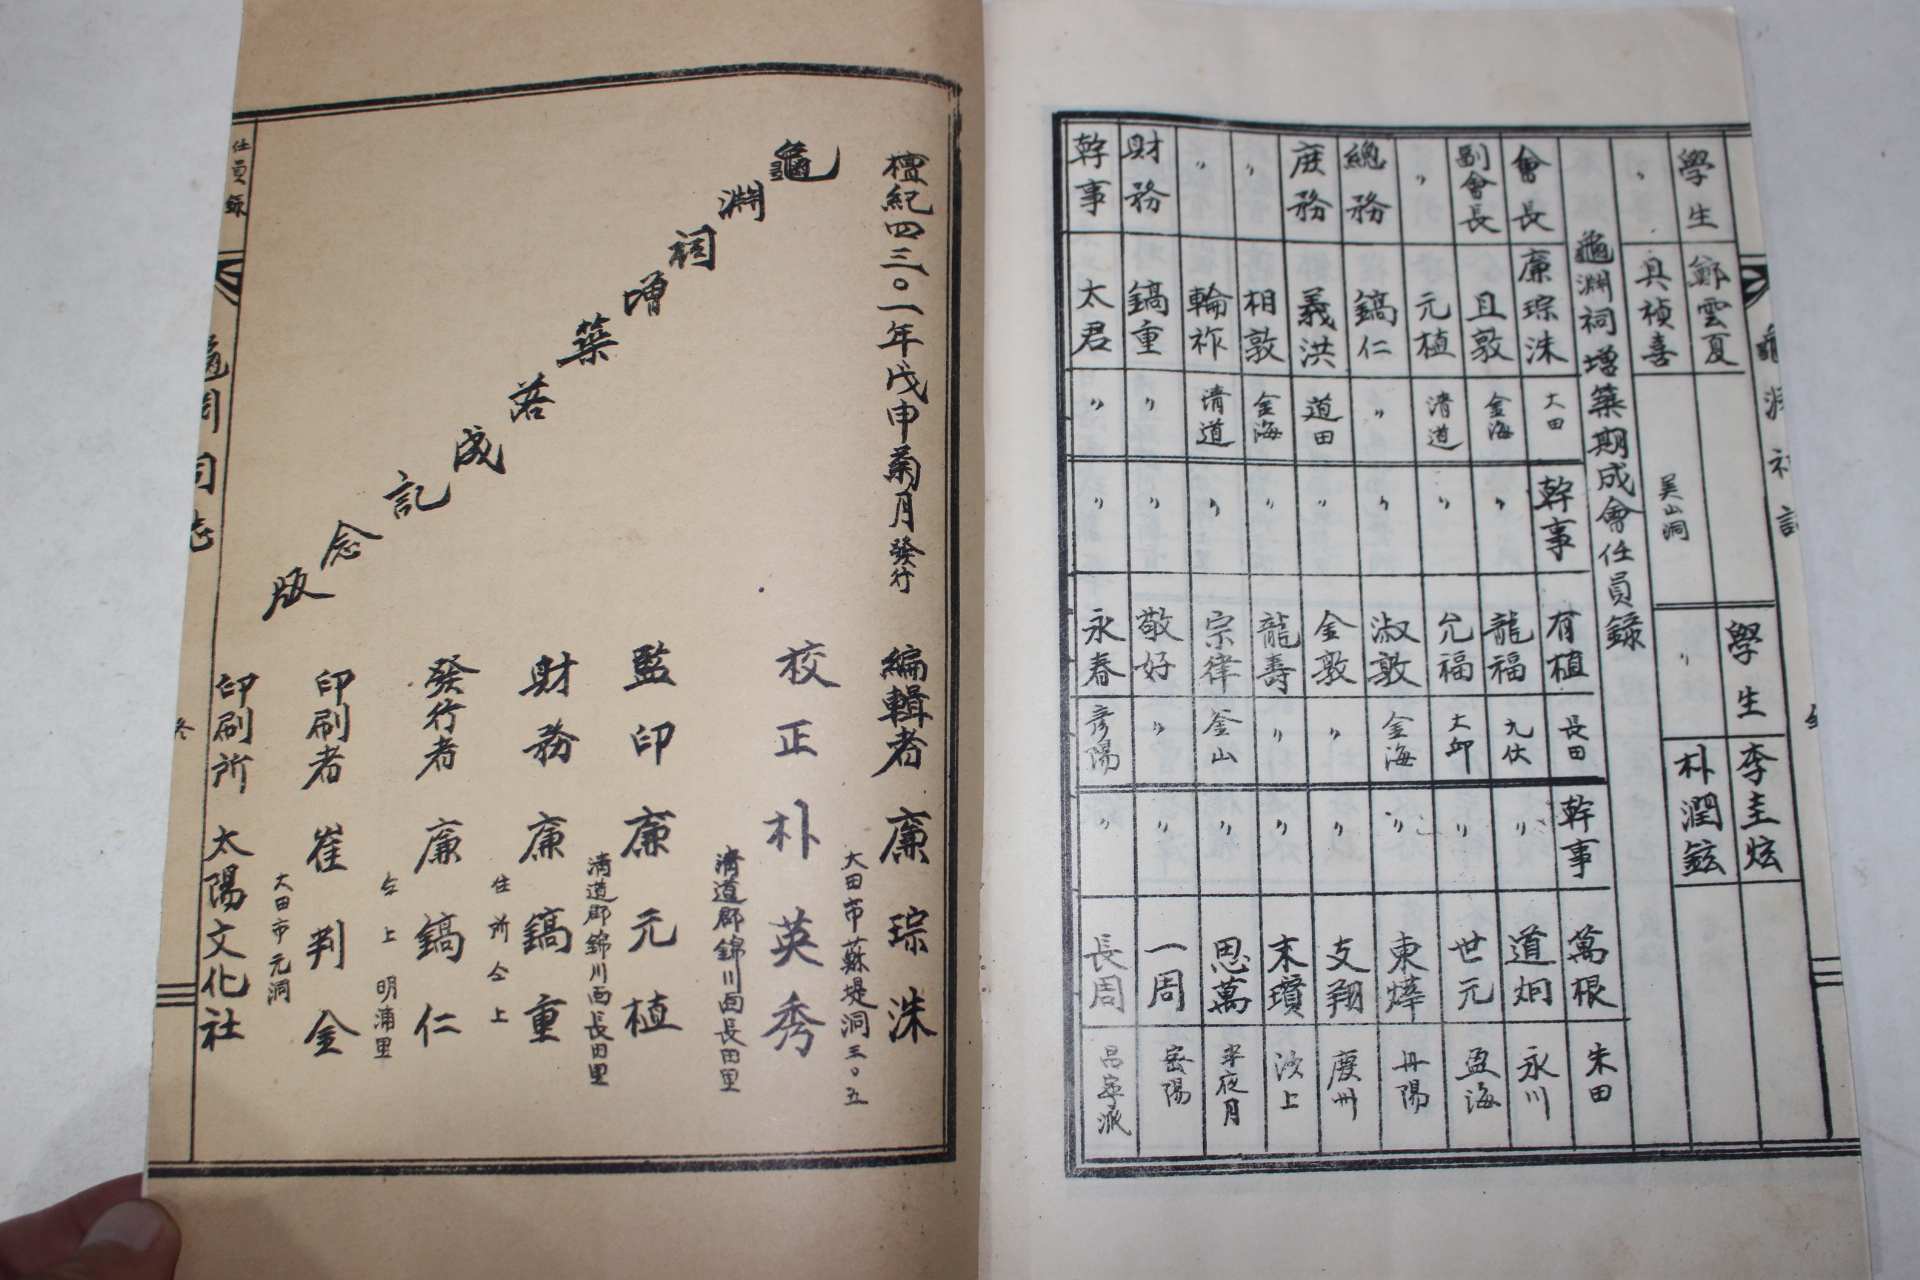 學生 鄭雲夏 學生 李圭炫
〃 具楨喜 美山洞 〃 朴潤鉉
龜淵祠增築期成會任員錄
會長 廉琮洙 大田 幹事 有植 長田 幹事 萬根 朱田
副會長 且敦 金海 〃 龍福 九伏 〃 道炯 永川
〃 元植 清道 〃 允福 大邱 〃 世元 盈海
總務 鎬仁 〃 〃 淑敦 金海 〃 東燁 丹陽
庶務 義洪 道田 〃 金敦 〃 〃 支翔 慶州
〃 相敦 金海 〃 龍壽 〃 〃 末瓚 汝上
〃 輪祚 清道 〃 宗律 釜山 〃 思萬 半夜月
財務 鎬重 〃 〃 敬好 〃 〃 一周 密陽
幹事 太君 〃 〃 永春 彦陽 〃 長周 昌寧派
檀紀四三〇一年戊申菊月發行
龜淵祠增築落成記念版
編輯者 廉琮洙
大田市蘇堤洞三〇五
校正 朴英秀
清道郡錦川面長田里
監印 廉元植
清道郡錦川面長田里
財務 廉鎬重
住所仝上
發行者 廉鎬仁
仝上 明浦里
印刷者 崔判金
大田市元洞
印刷所 太陽文化社
任員錄